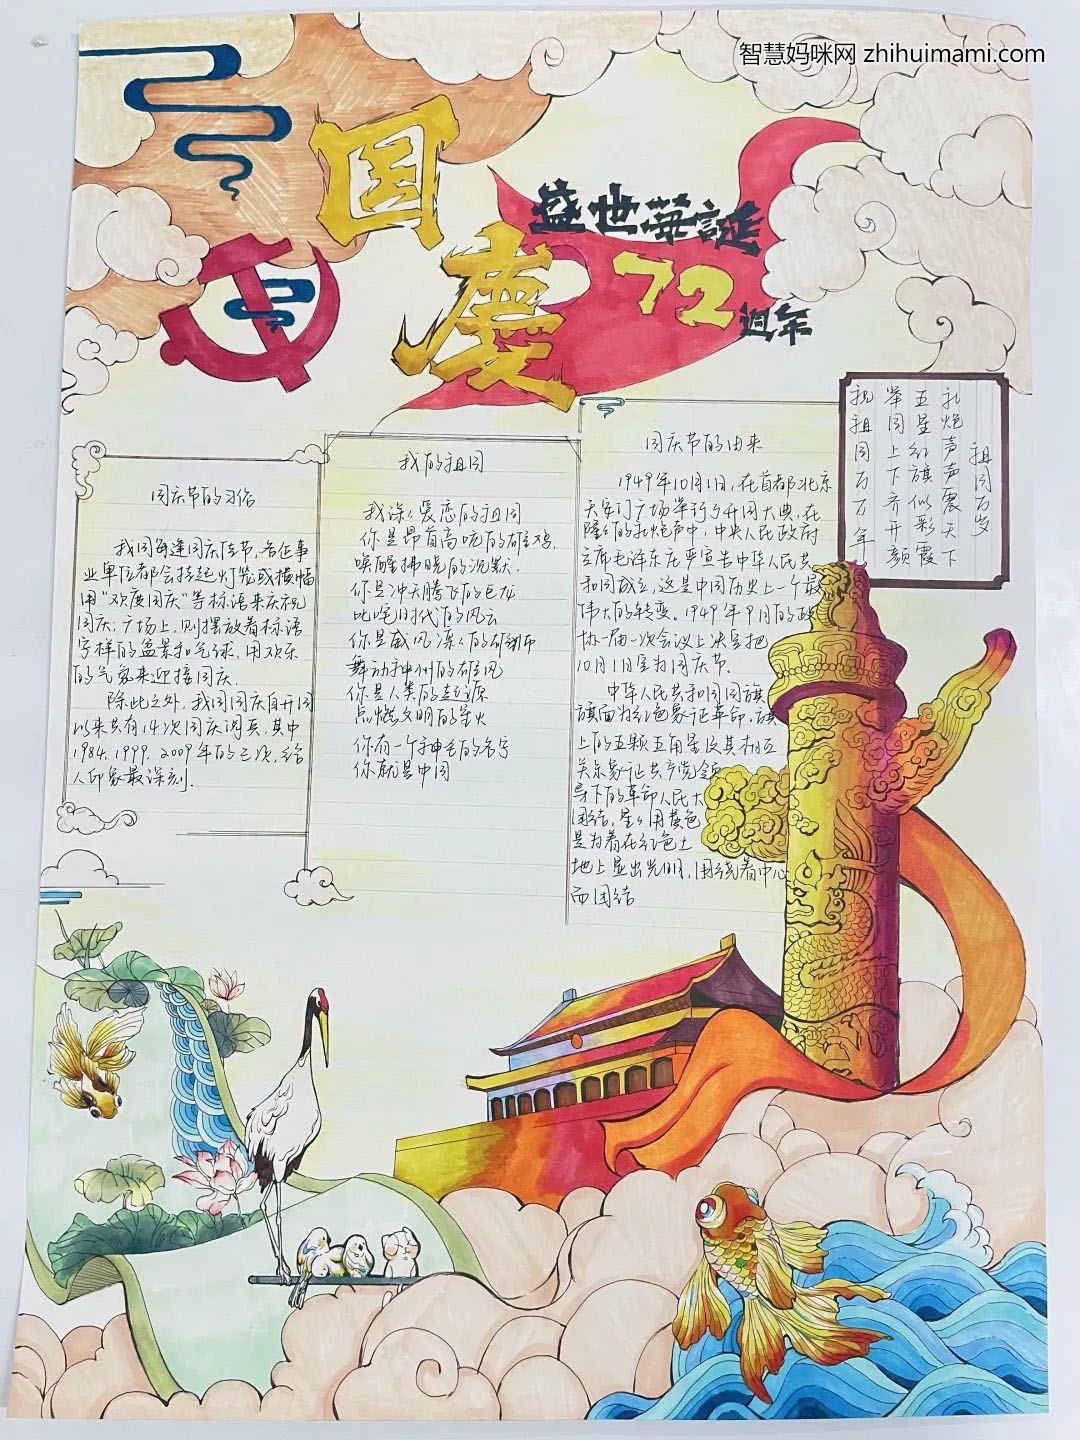 智慧妈咪网 zhihuimami.com
国
慶
盛世華誕
72
週年
祖国万岁
礼炮声声震天下
五星红旗似彩霞
举国上下齐开颜
祝祖国万万年
国庆节的习俗
我国每逢国庆佳节,各企事
业单位都会挂起灯笼或横幅
用"欢度国庆"等标语来庆祝
国庆;广场上,则摆放着标语
字样的盆景和气球,用欢乐
的气氛来迎接国庆.
除此之外,我国国庆自开国
以来共有14次国庆阅兵,其中
1984,1999,2009年的三次,给
人印象最深刻.
我的祖国
我深深爱恋的祖国
你是昂首高吭的雄鸡,
唤醒拂晓的沉默.
你是冲天腾飞的巨龙
叱咤时代的风云
你是威风凛凛的雄狮
舞动神州的雄风
你是人类的起源
点燃文明的星火
你有一个神圣的名字
你就是中国
国庆节的由来
1949年10月1日,在首都北京
天安门广场举行了开国大典,在
隆隆的礼炮声中,中央人民政府
主席毛泽东庄严宣告中华人民共
和国成立,这是中国历史上一个最
伟大的转变。1949年9月的政
协一届一次会议上决定把
10月1日定为国庆节.
中华人民共和国国旗
旗面为红色象征革命,旗
上的五颗五角星及其相互
关系象征共产党领
导下的革命人民大
团结,星星用黄色
是为着在红色土
地上显出光明,围绕着中心
而团结